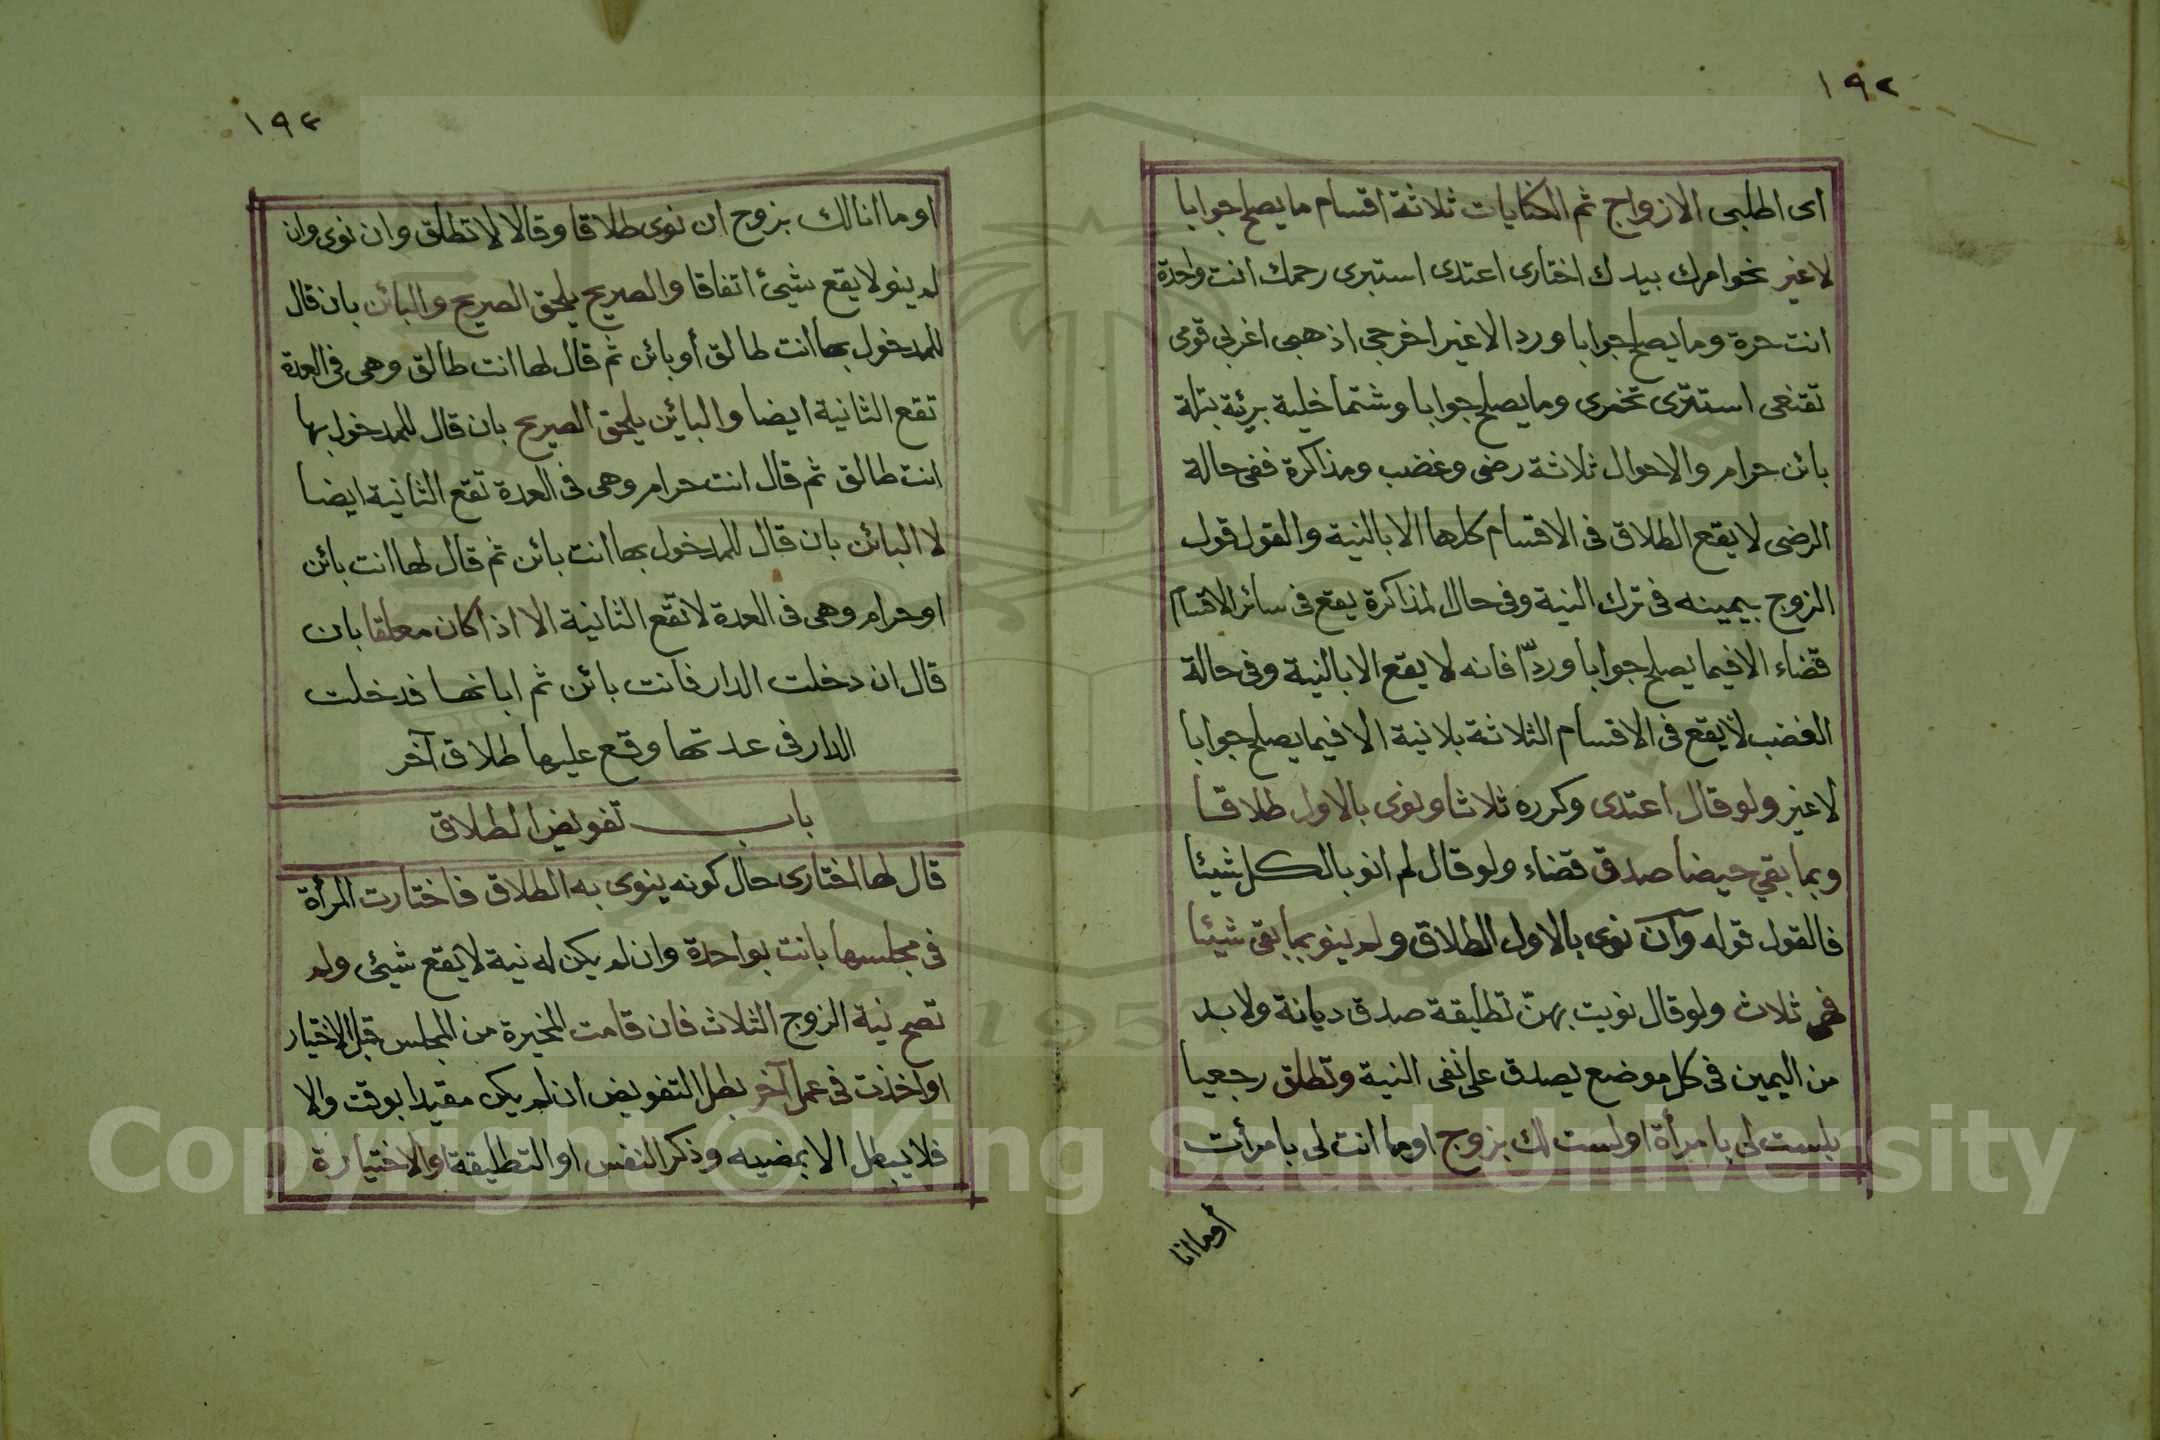 ١٩٢
اى اطلبى الازواج ثم الكنايات ثلاثة اقسام ما يصلح جوابا
لا غير نحوامرك بيدك اختارى اعتدى استبرى رحمك انت واحدة
انت حرة وما يصلح جوابا وردا لا غير اخرجى اذهبى اغربى قومى
تقنعى استترى تخمرى وما يصلح جوابا وشتما خلية بريئة بتلة
بائن حرام والاحوال ثلاثة رضى وغضب ومذاكرة ففى حالة
الرضى لا يقع الطلاق فى الاقسام كلها الا بالنية والقول قول
الزوج بيمينه فى ترك النية وفى حال المذاكرة يقع فى سائر الاقسام
قضاء الا فيما يصلح جوابا وردّا فانه لا يقع الا بالنية وفى حالة
الغضب لا يقع فى الاقسام الثلاثة بلا نية الا فيما يصلح جوابا
لا غير ولو قال اعتدى وكرره ثلاثا ونوى بالاول طلاقا
وبما بقي حيضا صدق قضاء ولو قال لم انو بالكل شيئا
فالقول قوله وان نوى بالاول الطلاق ولم ينو بما بقى شيئا
فهى ثلاث ولو قال نويت بهنّ تطليقة صدق ديانة ولا بد
من اليمين فى كل موضع يصدق على نفى النية وتطلق رجعيا
بلست لى بامرأة او لست لك بزوج او ما انت لى بامرأت
أو ما انا
١٩٣
او ما انا لك بزوج ان نوى طلاقا وقالا لا تطلق وان نوى وان
لم ينو لا يقع شيئ اتفاقا والصريح يلحق الصريح والبائن بان قال
للمدخول بها انت طالق أو بائن ثم قال لها انت طالق وهى فى العدة
تقع الثانية ايضا والبائن يلحق الصريح بان قال للمدخول بها
انت طالق ثم قال انت حرام وهى فى العدة تقع الثانية ايضا
لا البائن بان قال للمدخول بها انت بائن ثم قال لها انت بائن
او حرام وهى فى العدة لا تقع الثانية الا اذا كان معلقا بان
قال ان دخلت الدار فانت بائن ثم ابانها فدخلت
الدار فى عدتها وقع عليها طلاق آخر
باب تفويض الطلاق
قال لها اختارى حال كونه ينوى به الطلاق فاختارت المرأة
فى مجلسها بانت بواحدة وان لم يكن له نية لا يقع شيئ ولم
تصح نية الزوج الثلاث فان قامت المخيرة من المجلس قبل الاختيار
او اخذت فى عمل آخر بطل التفويض ان لم يكن مقيدا بوقت والا
فلا يبطل الا بمضيه وذكر النفس او التطليقة او الاختيارة
Copyright © King Saud University
1957